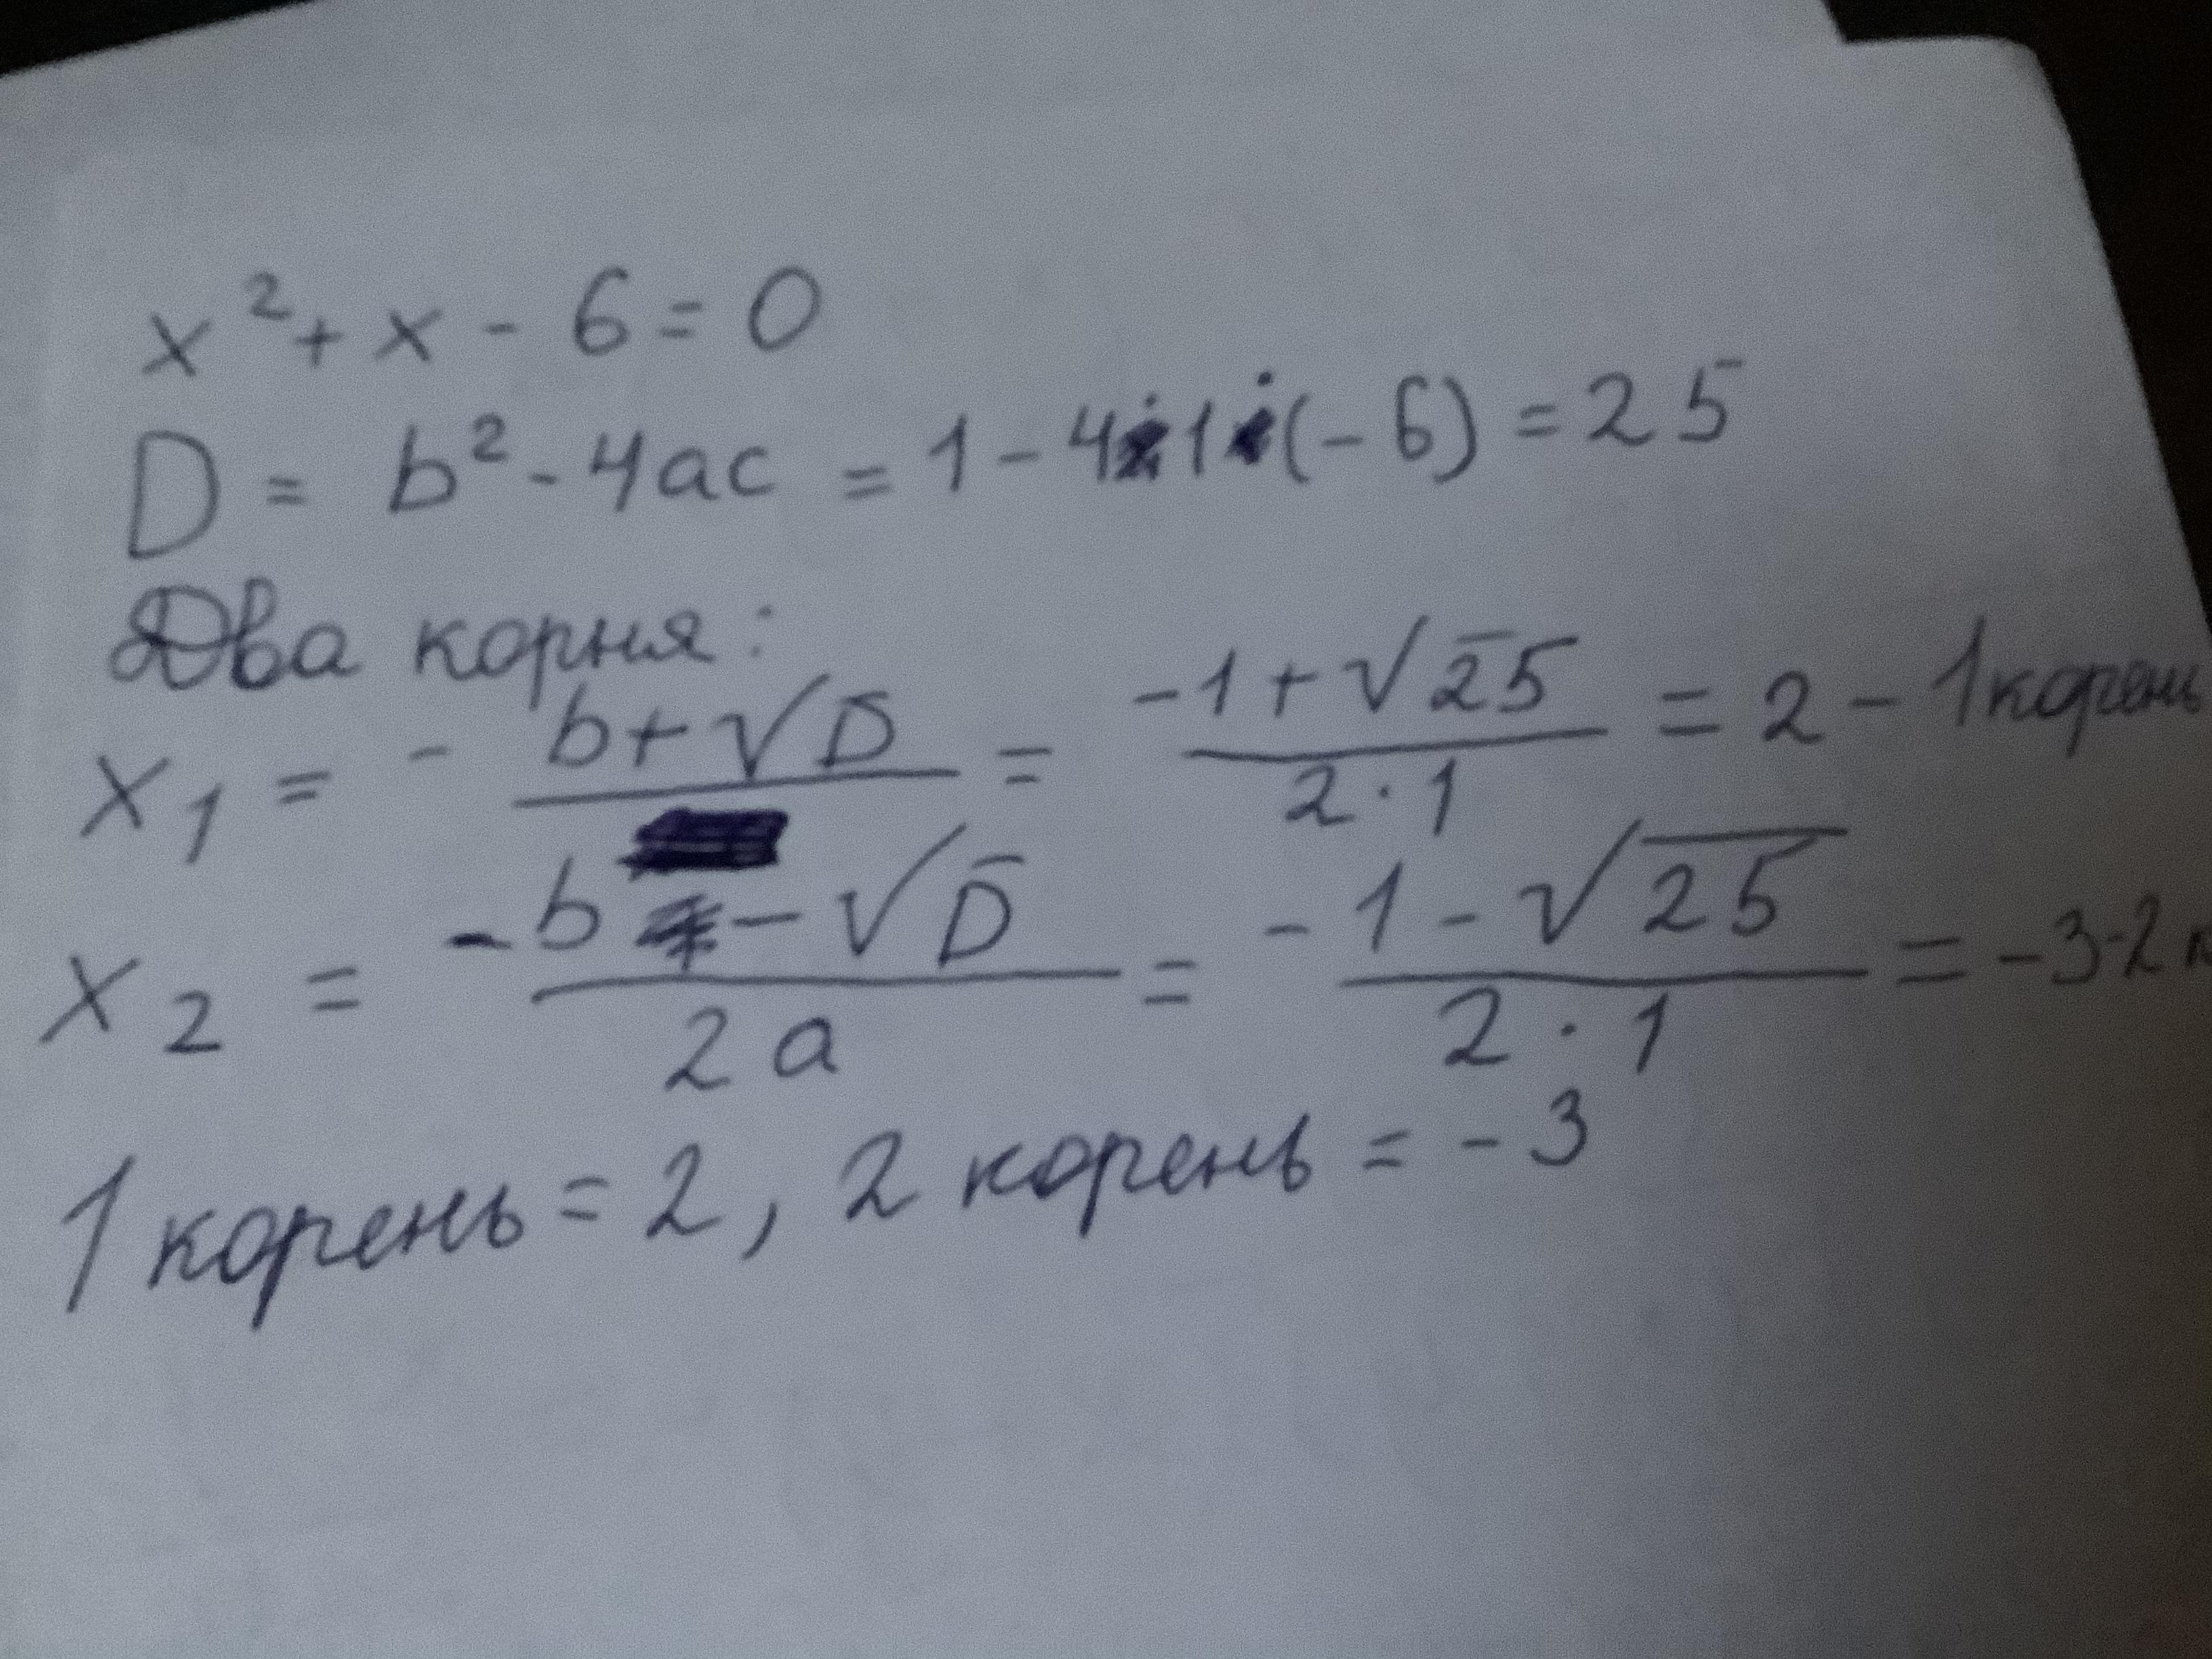 x² + x - 6 = 0
D = b² - 4ac = 1 - 4·1·(-6) = 25
Два корня:
x₁ = - b+√D / = -1+√25 / 2·1 = 2 - 1 корень
x₂ = -b - √D / 2a = -1-√25 / 2·1 = -3-2
1 корень = 2, 2 корень = -3